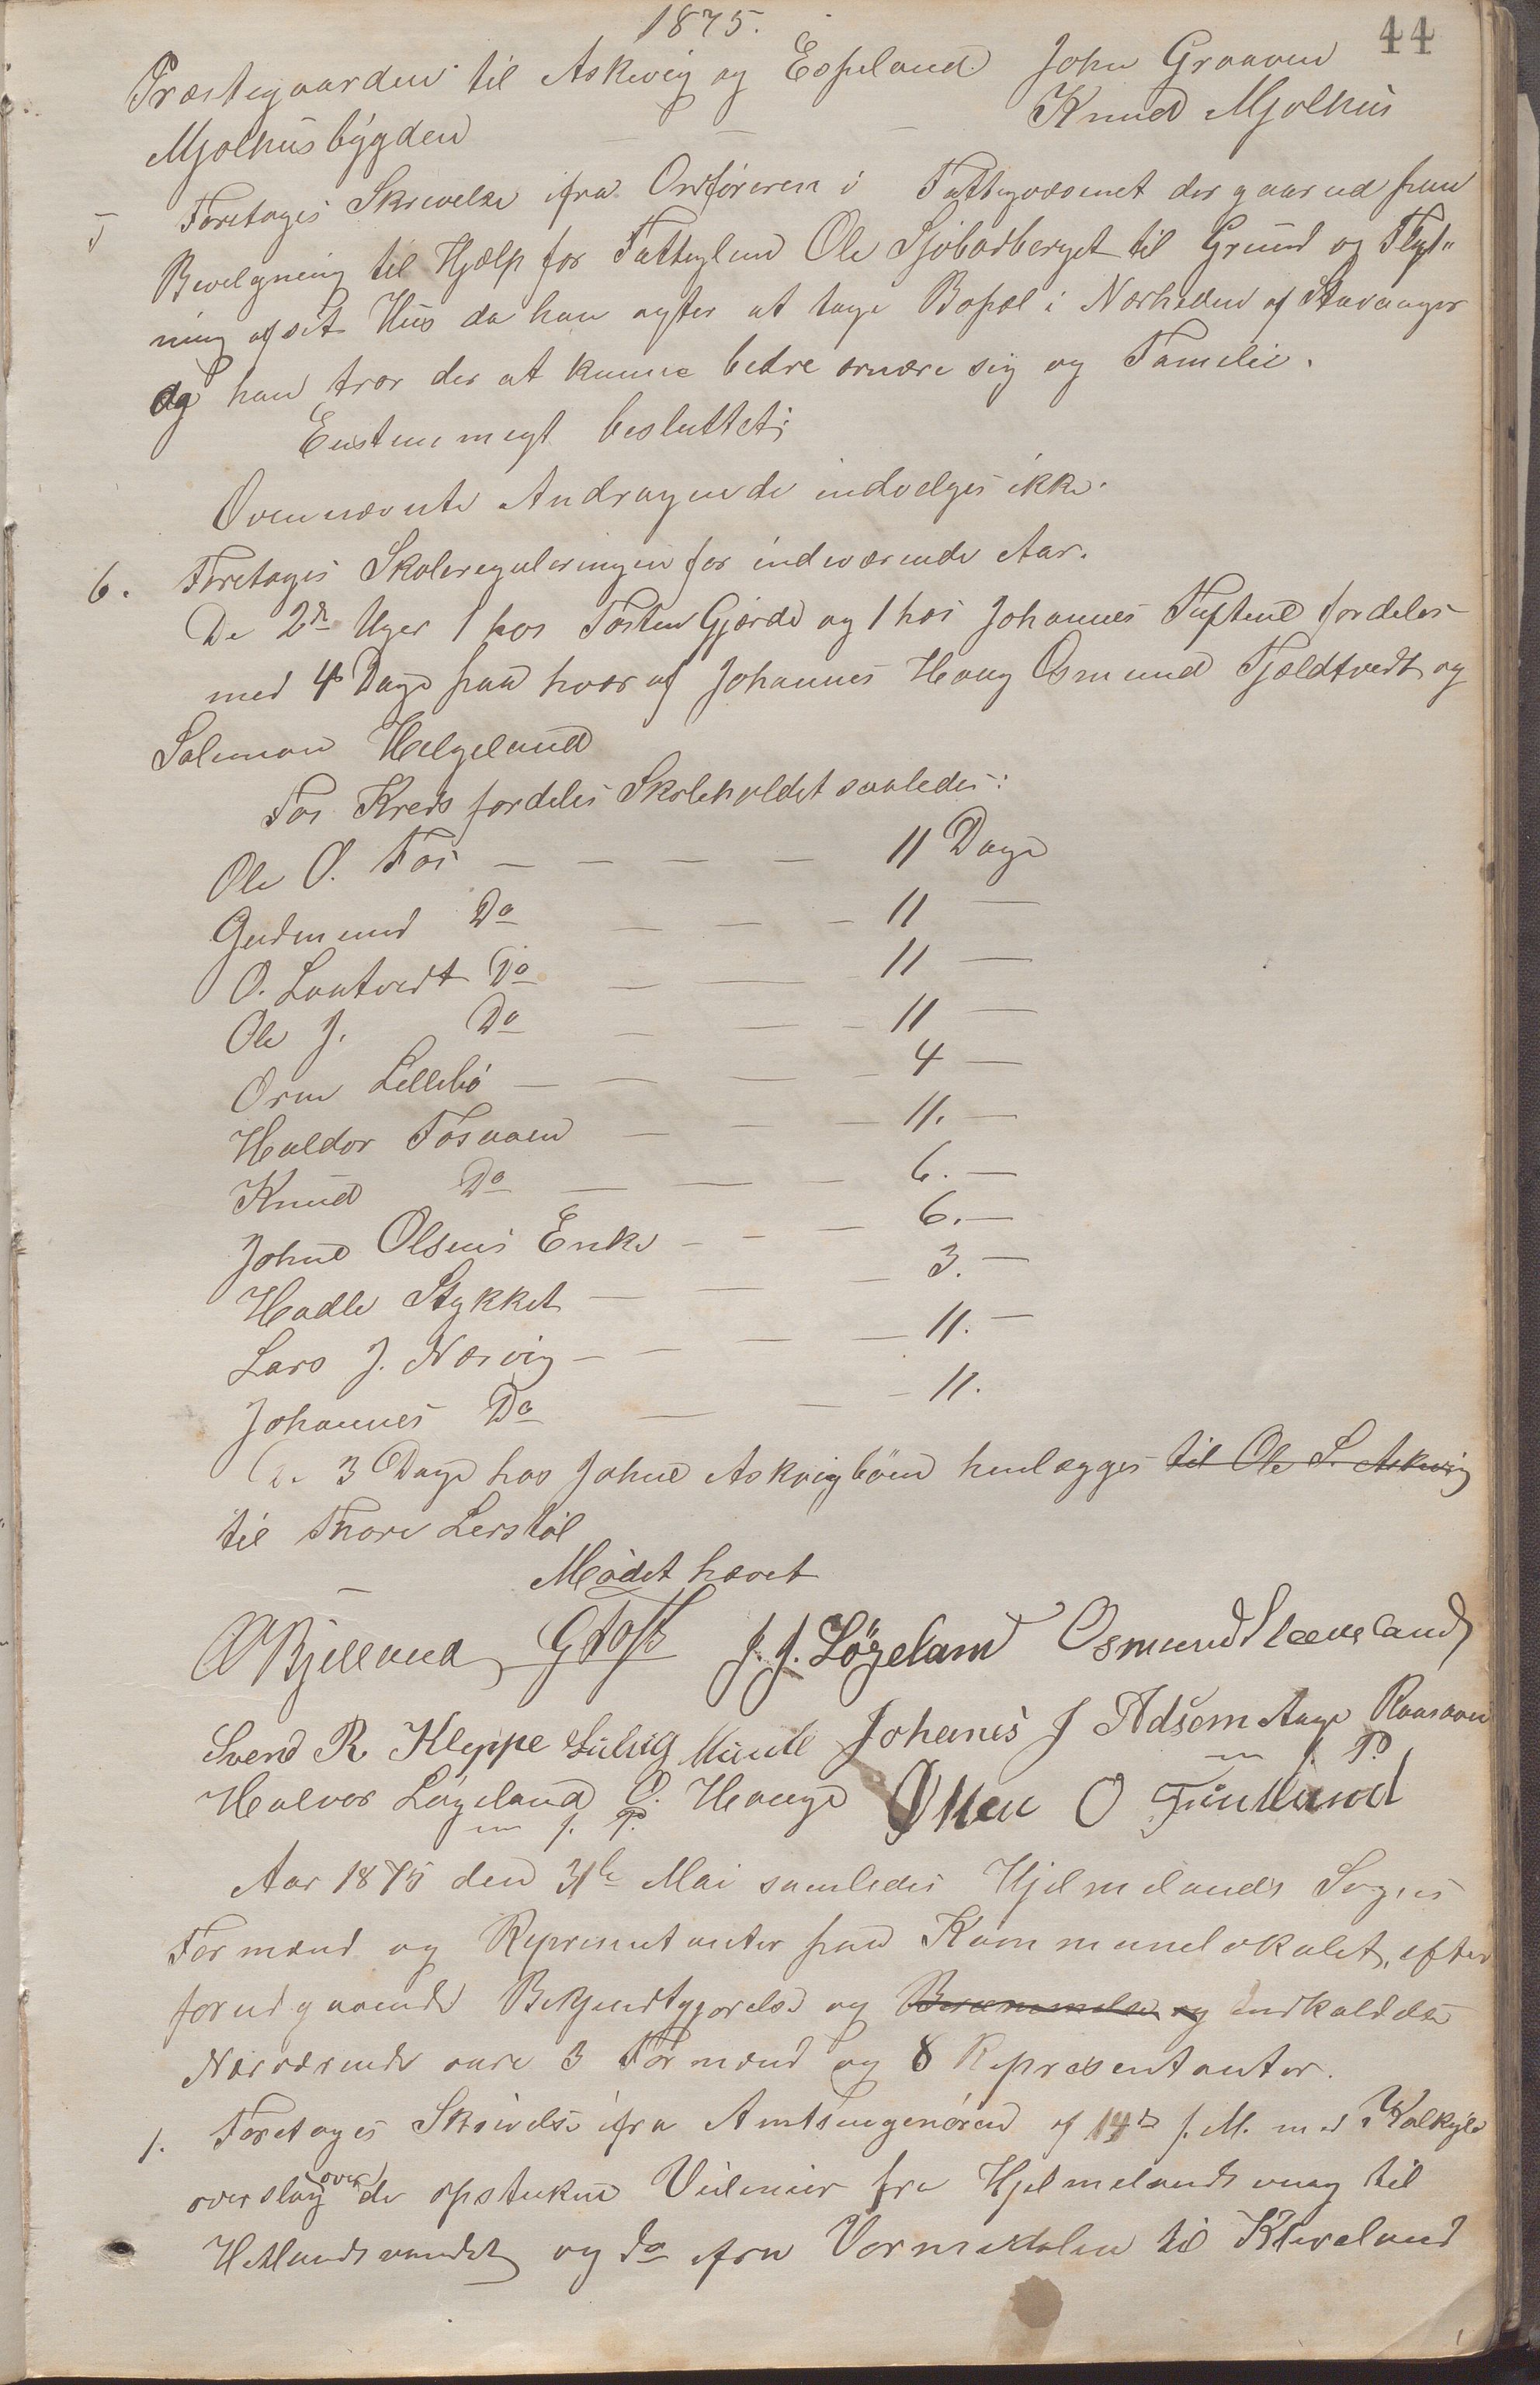 1875.
44
Præstegaarden til Askvig og Espeland John Graaven
Mjølhusbygden — — — Knud Mjølhus
5 Foretoges Skrivelse ifra Ordføreren i Fattigvæsenet der gaar ud paa
Bevilgning til Hjælp for Fattiglem Ole Sjöbadberget til Grund og Flyt„
ning af sit Hus da han agter at tage Bopæl i Nærheden af Stavanger
og han tror der at kunne bedre ernære sig og Familie.
Enstemmigt besluttet:
Ovennævnte Andragende indvelges ikke.
6. Foretoges Skolereguleringen for indeværende Aar.
De 2de Uger 1 hos Tosten Gjærde og 1 hos Johannes Tuftene fordeles
med 4 Dage paa hver af Johannes Haug Osmund Fjeldtvedt og
Salomon Helgeland
Fos Kreds fordeles Skoleholdet saaledes:
Ole O. Fos — — — — 11 Dage
Gudmund Do — — — 11 —
O. Laatvedt Do — — 11 —
Ole J. Do — — — 11 —
Orm Lillebö — — — — 4 —
Haldor Fosaaen — — — 11. —
Knud Do — — — 6. —
Johne Olsens Enke — — — 6. —
Hadle Stykket — — — 3. —
Lars J. Næsvig — — — — 11. —
Johannes Do — — — 11.
De 3 Dage hos Johne Askvigböen henlægges til Ole S. Askvig
til Thore Lerstöl
Mødet hævet
O Bjelland G Foss J. J. Løgeland Osmund Steensland
Svend R Kleppe Ludvig Munk Johanes J Adsem Aage Raasaaen
m. f. P.
Halvor Løgeland O. Hauge Osten O Funtland
m. f. P.
Aar 1875 den 31te Mai samledes Hjelmelands Sogns
Formænd og Representanter paa Kommunelokalet, efter
forudgaaende Bekjendtgjørelse og Berammelse og Indkaldelse
Nærværende vare 3 Formænd og 8 Representanter.
1. Foretoges Skrivelse ifra Amtsingeniøren af 14de f. M. med Kalkyle
overslag over de opstukne Veilinier fra Hjelmelandsvaag til
Hetlandsvandet og do ifra Vormedalen til Kleveland